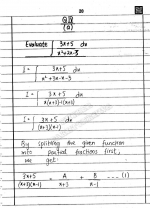 20
Q.3
(a)
Evaluate ∫ 3x+5 / x²+2x-3 dx
I = ∫ 3x+5 / x²+3x-x-3 dx
I = ∫ 3x+5 / x(x+3)-1(x+3) dx
I = ∫ 3x+5 / (x+3)(x-1) dx
By splitting the given function
into partial fractions first,
we get
3x+5 / (x+3)(x-1) = A / x+3 + B / x-1 --- (1)